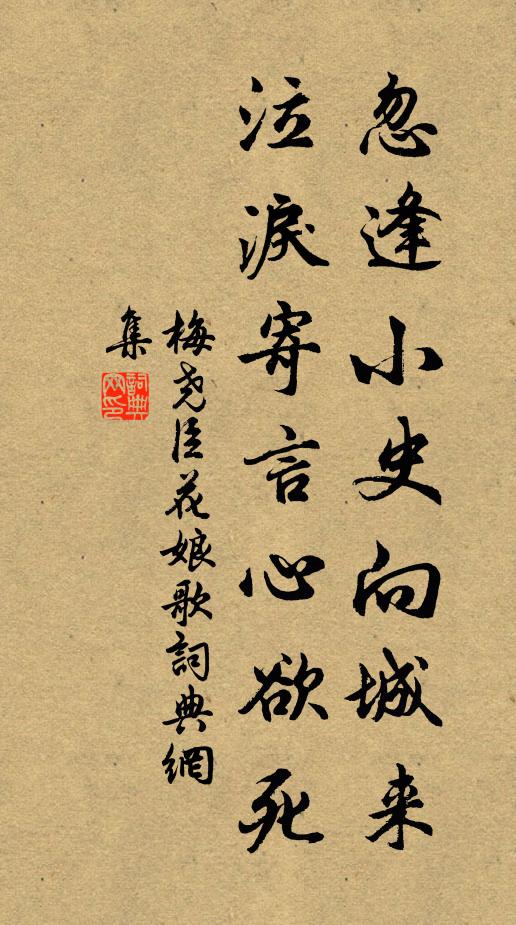 忽逢小史向城来
泣淚寄言心欲死
梅尧臣花娘歌詞典網
集
詞典
网印